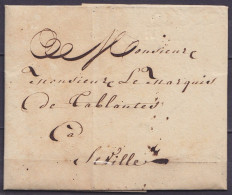 A Monsieur
Monsieur Le Marquis
de Tablantes
à
Seville